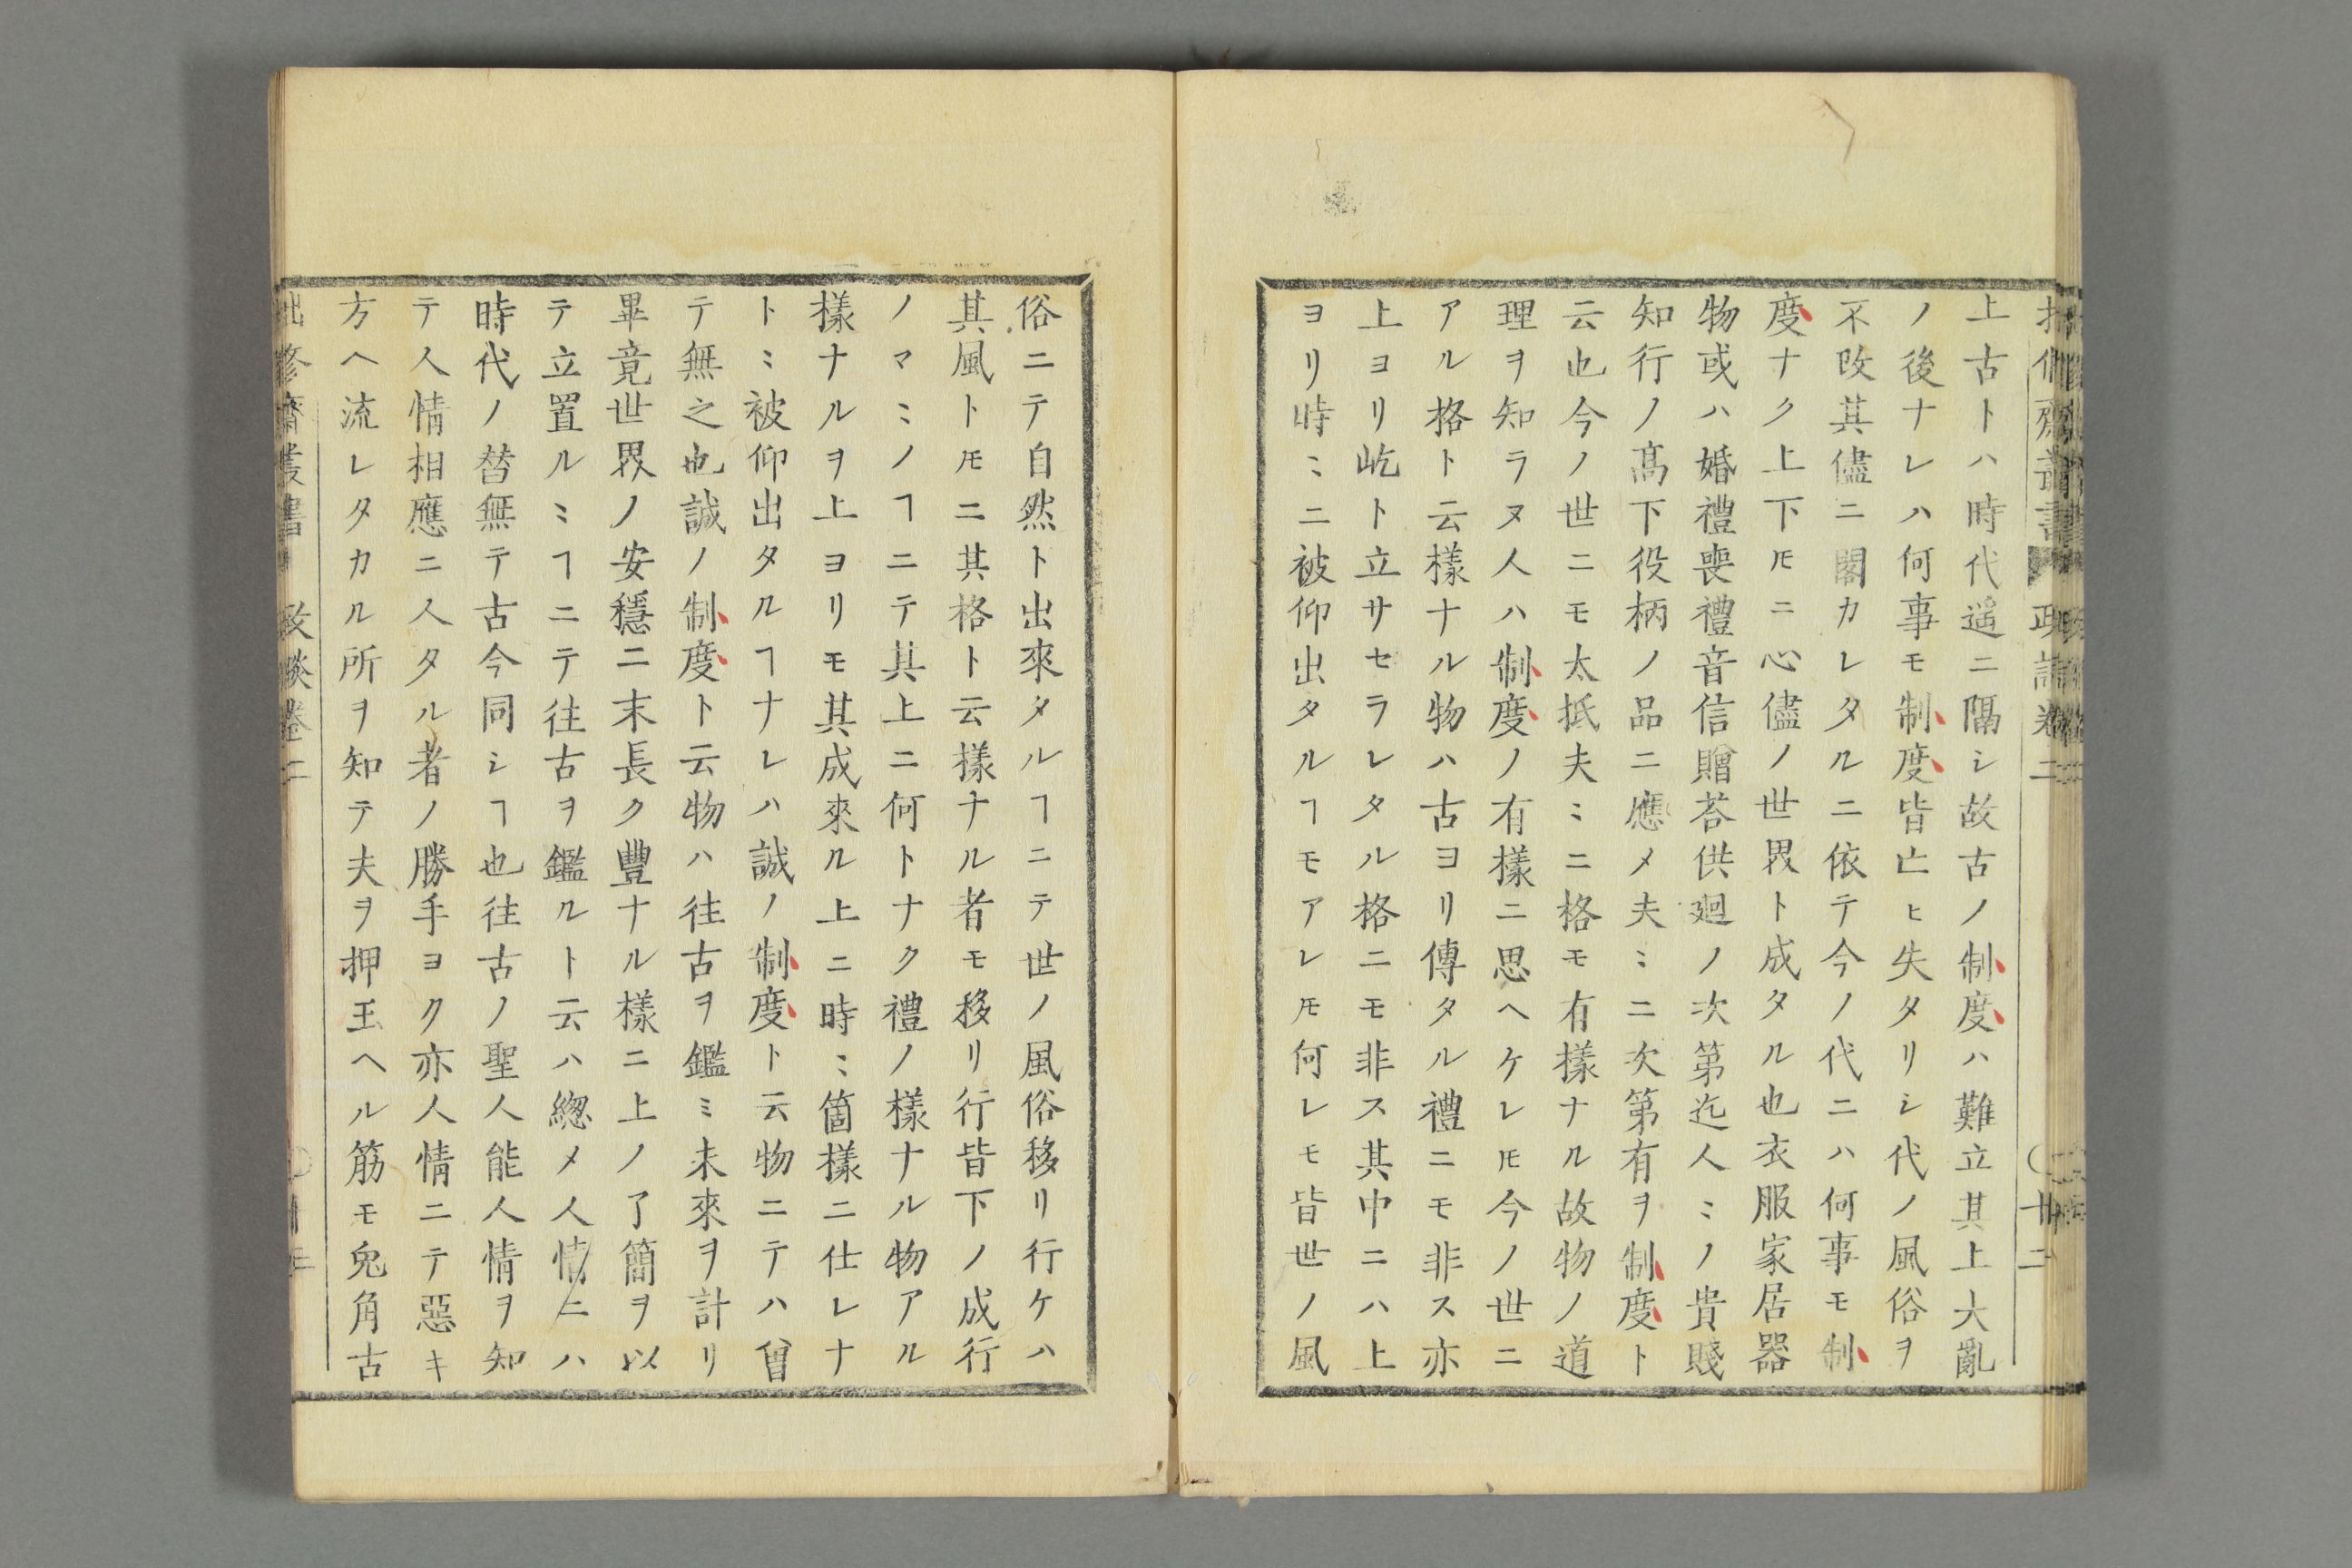 政談卷二
廿二
上古トハ時代遥ニ隔シ故古ノ制度ハ難立其上大亂
ノ後ナレハ何事モ制度皆亡ヒ失タリシ代ノ風俗ヲ
不改其儘ニ閣カレタルニ依テ今ノ代ニハ何事モ制
度ナク上下𪜈ニ心儘ノ世界ト成タル也衣服家居器
物或ハ婚禮喪禮音信贈荅供廻ノ次第迄人〻ノ貴賤
知行ノ髙下役柄ノ品ニ應メ夫〻ニ次第有ヲ制度ト
云也今ノ世ニモ太抵夫〻ニ格モ有樣ナル故物ノ道
理ヲ知ラヌ人ハ制度ノ有樣ニ思ヘケレ𪜈今ノ世ニ
アル格ト云樣ナル物ハ古ヨリ傳タル禮ニモ非ス亦
上ヨリ屹ト立サセラレタル格ニモ非ス其中ニハ上
ヨリ時〻ニ被仰出タルヿモアレ𪜈何レモ皆世ノ風
俗ニテ自然ト出來タルヿニテ世ノ風俗移リ行ケハ
其風ト𪜈ニ其格ト云樣ナル者モ移リ行皆下ノ成行
ノマ〻ノヿニテ其上ニ何トナク禮ノ樣ナル物アル
樣ナルヲ上ヨリモ其成來ル上ニ時〻箇樣ニ仕レナ
ト〻被仰出タルヿナレハ誠ノ制度ト云物ニテハ曾
テ無之也誠ノ制度ト云物ハ往古ヲ鑑ミ未來ヲ計リ
畢竟世界ノ安穩ニ末長ク豐ナル樣ニ上ノ了簡ヲ以
テ立置ル〻ヿニテ往古ヲ鑑ルト云ハ緫メ人情ニハ
時代ノ替無テ古今同シヿ也往古ノ聖人能人情ヲ知
テ人情相應ニ人タル者ノ勝手ヨク亦人情ニテ惡キ
方ヘ流レタカル所ヲ知テ夫ヲ押玉ヘル筋モ兔角古
修齋叢書
政談卷二